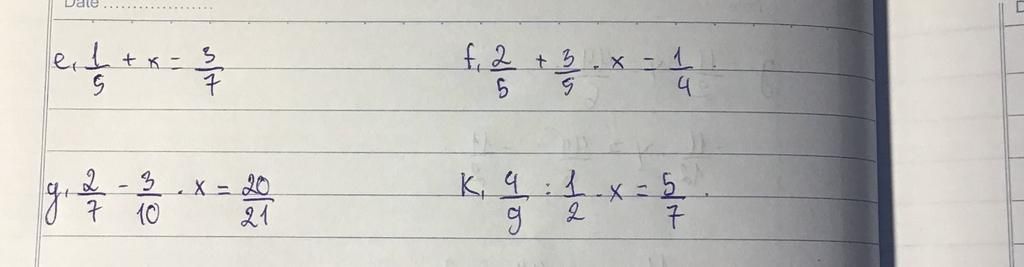 Date
e, 1/5 + x = 3/7
f, 2/5 + 3/5 . x = 1/4
g, 2/7 - 3/10 . x = 20/21
K, 4/9 : 1/2 . x = 5/7.